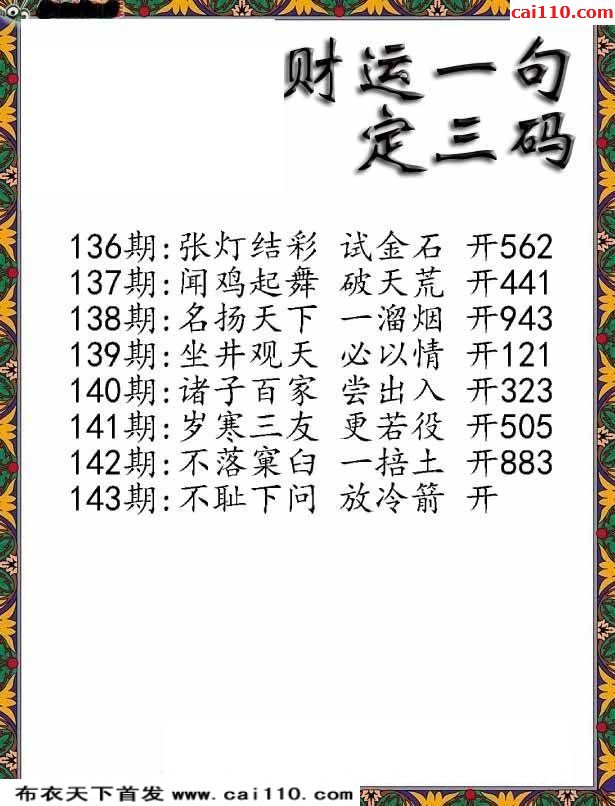 cai110.com
财运一句
定三码
136期:张灯结彩 试金石 开562
137期:闻鸡起舞 破天荒 开441
138期:名扬天下 一溜烟 开943
139期:坐井观天 必以情 开121
140期:诸子百家 尝出入 开323
141期:岁寒三友 更若役 开505
142期:不落窠臼 一掊土 开883
143期:不耻下问 放冷箭 开
布衣天下首发 www.cai110.com